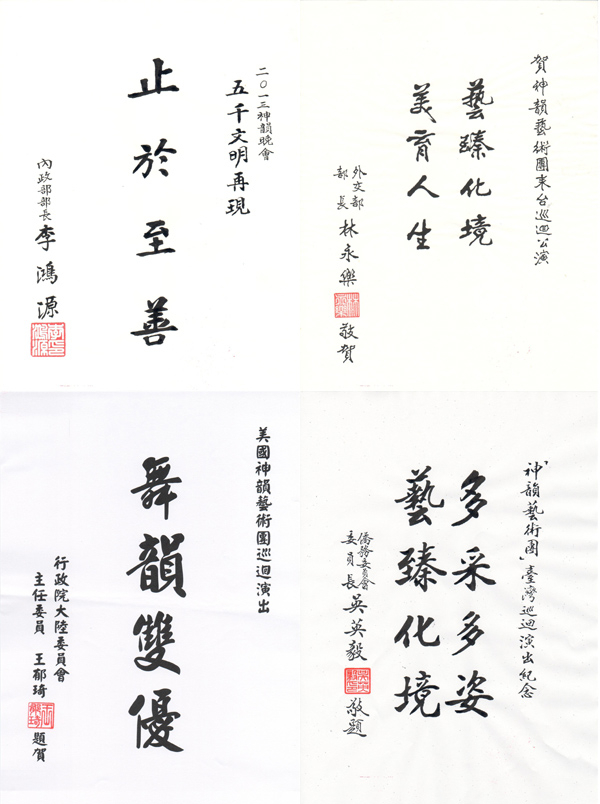 二〇一三神韻晚會
五千文明再現
止於至善
內政部部長 李鴻源
賀神韻藝術團來台巡迴公演
藝臻化境
美育人生
外交部
部長 林永樂 敬賀
美國神韻藝術團巡迴演出
舞韻雙優
行政院大陸委員會
主任委員 王郁琦 題賀
「神韻藝術團」臺灣巡迴演出紀念
多采多姿
藝臻化境
僑務委員會
委員長 吳英毅 敬題